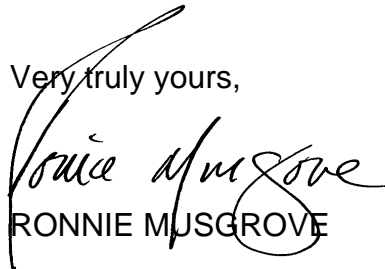 Very truly yours,
Ronnie Musgrove
RONNIE MUSGROVE